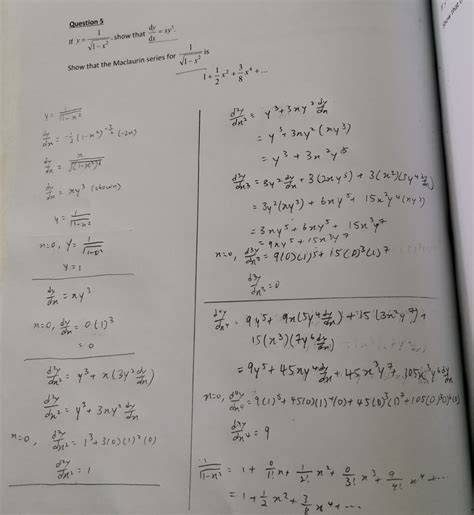 Question 5
If y = 1/√(1-x²), show that dy/dx = xy³.
Show that the Maclaurin series for 1/√(1-x²) is
1 + 1/2 x² + 3/8 x⁴ + ...
y = 1/√(1-x²)
dy/dx = -1/2 (1-x²)^(-3/2) (-2x)
dy/dx = x/√(1-x²)³
dy/dx = xy³ (shown)
y = 1/√(1-x²)
x=0, y = 1/√(1-0²)
y = 1
dy/dx = xy³
x=0, dy/dx = 0(1)³
= 0
d²y/dx² = y³ + x(3y² dy/dx)
d²y/dx² = y³ + 3xy² dy/dx
x=0, d²y/dx² = 1³ + 3(0)(1)²(0)
d²y/dx² = 1
d²y/dx² = y³ + 3xy² dy/dx
= y³ + 3xy² (xy³)
= y³ + 3x²y⁵
d³y/dx³ = 3y² dy/dx + 3(2xy⁵) + 3(x²)(5y⁴ dy/dx)
= 3y²(xy³) + 6xy⁵ + 15x²y⁴(xy³)
= 3xy⁵ + 6xy⁵ + 15x³y⁷
= 9xy⁵ + 15x³y⁷
x=0, d³y/dx³ = 9(0)(1)⁵ + 15(0)³(1)⁷
= 0
d⁴y/dx⁴ = 9y⁵ + 9x(5y⁴ dy/dx) + 15(3x²y⁷) +
15(x³)(7y⁶ dy/dx)
= 9y⁵ + 45xy⁴ dy/dx + 45x²y⁷ + 105x³y⁶ dy/dx
x=0, d⁴y/dx⁴ = 9(1)⁵ + 45(0)(1)⁴(0) + 45(0)²(1)⁷ + 105(0)³(1)⁶(0)
d⁴y/dx⁴ = 9
1/√(1-x²) = 1 + 0/1! x + 1/2! x² + 0/3! x³ + 9/4! x⁴ + ...
= 1 + 1/2 x² + 3/8 x⁴ + ...